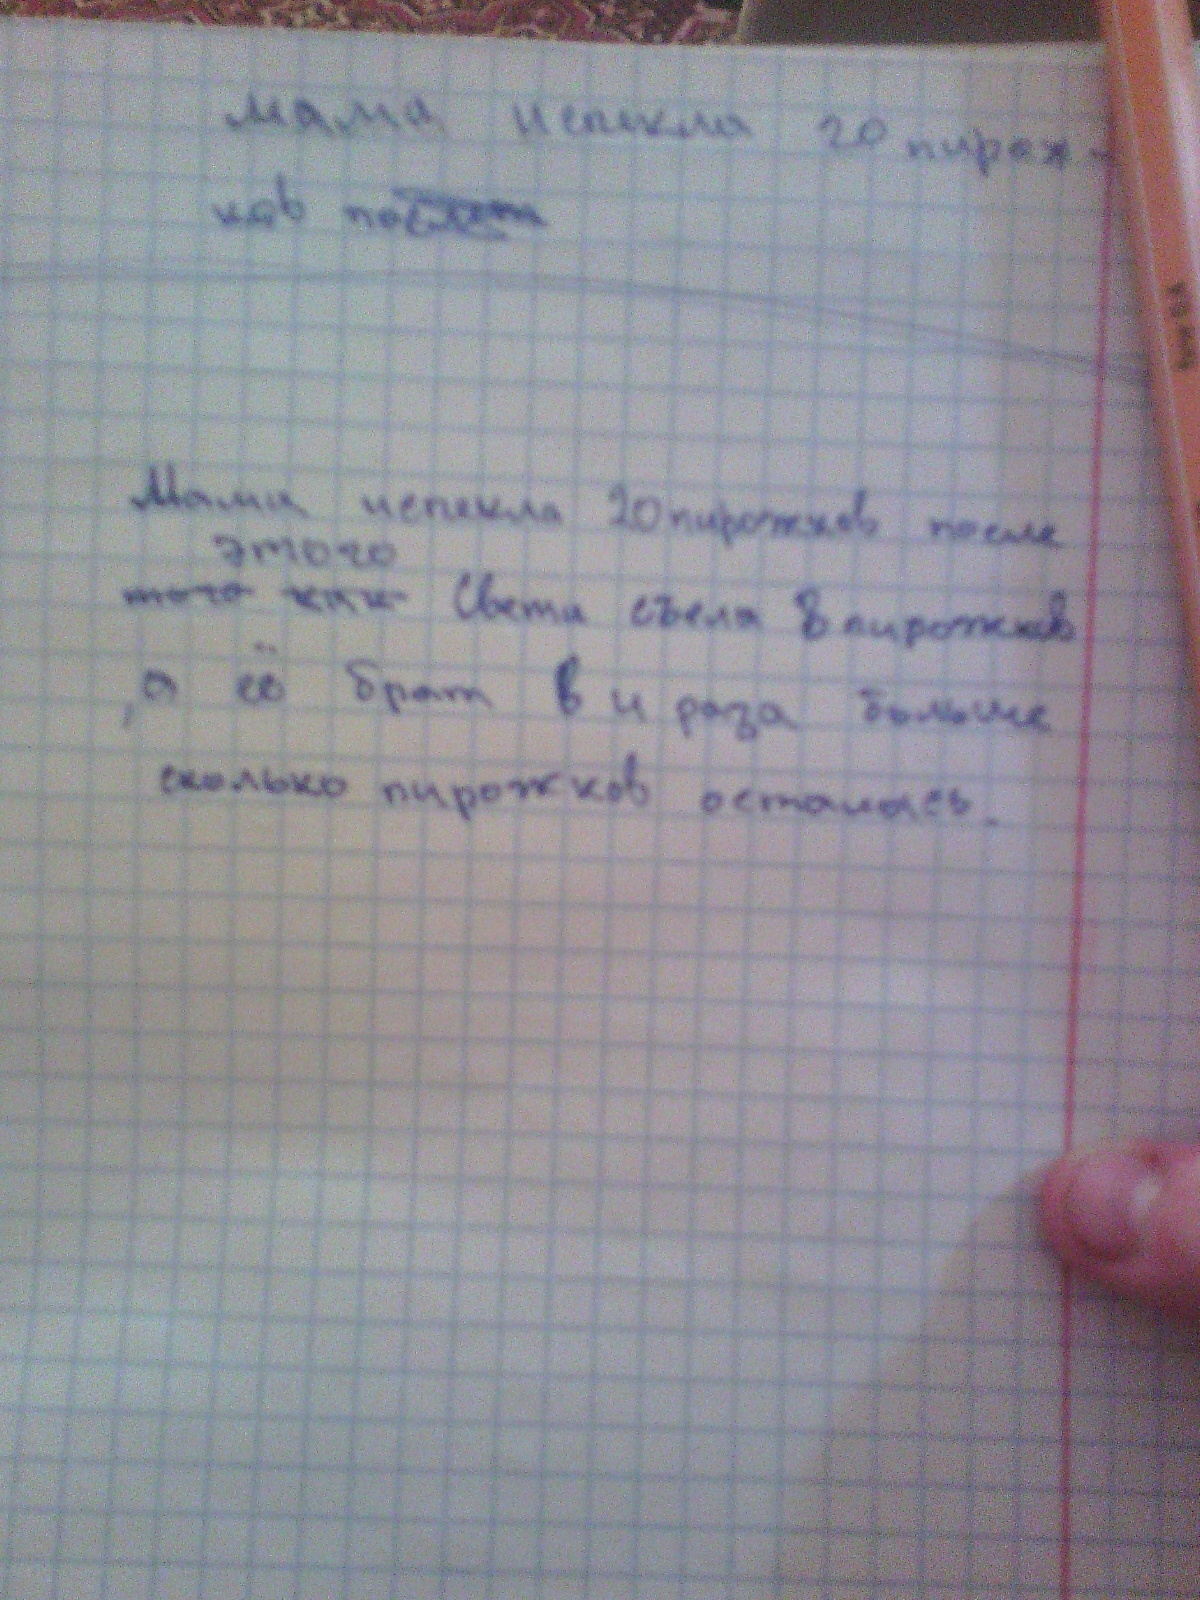 Мама испекла 20 пирож-
ков
Мама испекла 20 пирожков после
этого
того как Света съела 8 пирожков
, а её брат в 4 раза больше
сколько пирожков осталось.